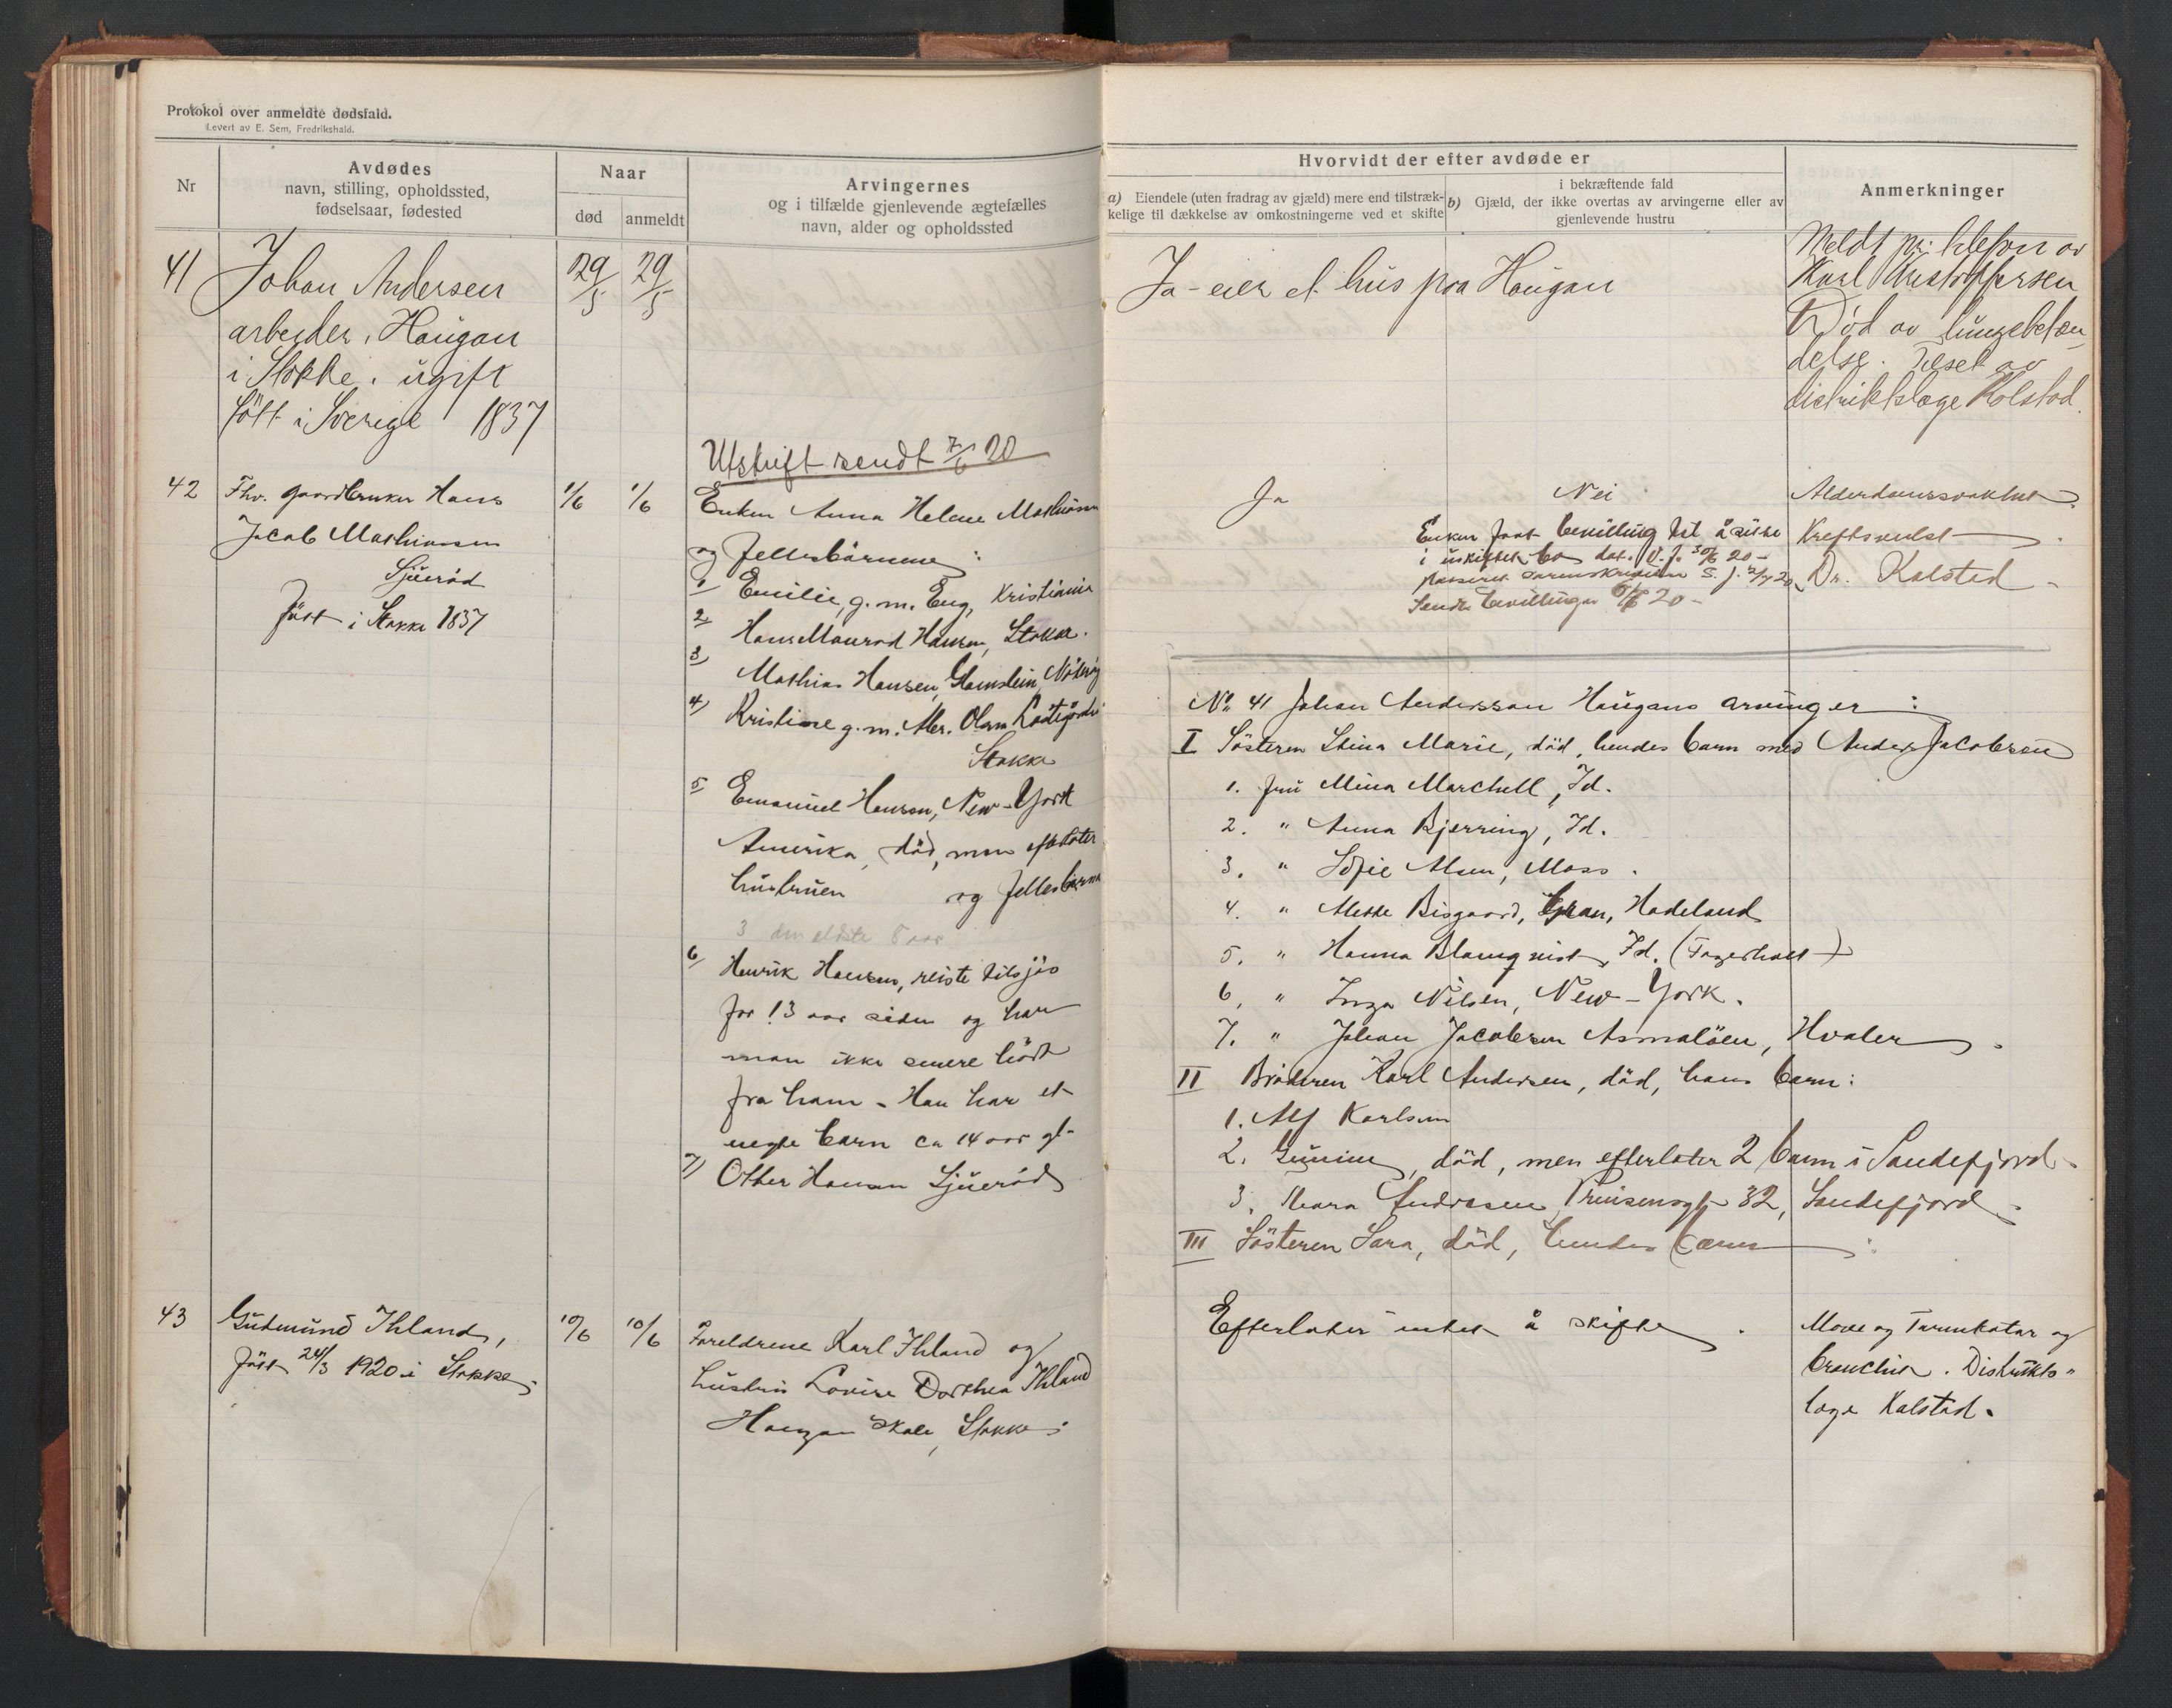 Protokol over anmeldte dødsfald.
Levert av E. Sem, Fredrikshald.
Nr
Avdødes
navn, stilling, opholdssted,
fødselsaar, fødested
Naar
død
anmeldt
Arvingernes
og i tilfælde gjenlevende ægtefælles
navn, alder og opholdssted
41
Johan Andersen
arbeider, Haugan
i Stokke. ugift
født i Sverige 1837
29/5
29/5
Utskrift sendt 7/6 20
42
Fhv. gaardbruker Hans
Jacob Mathiassen
Sjuerød
født i Stokke 1837
1/6
1/6
Enken Anna Helene Mathiasen
og fellesbarnene:
1 Emilie, g.m. Eng, Kristiania
2 Hans Maurod Hansen, Stokke.
3) Mathias Hansen, Nøterø
4) Kristine g.m. Olsen
Stokke
5 Emanuel Hansen, New-York
Amerika, død, men efterlater
hustruen og fellesbarna
3 den eldste 8 aar
6) Henrik Hansen, reiste tilsjøs
for 13 aar siden og har
man ikke senere hørt
fra ham - Han har et
uegte barn ca 14 aar gl.
7) Otter Hansen Sjuerød
43
Gudmund Ihland,
født 24/3 1920 i Stokke,
10/6
10/6
Foreldrene Karl Ihland og
hustru Lovise Dorthea Ihland
Haugan skole, Stokke.
Hvorvidt der efter avdøde er
a) Eiendele (uten fradrag av gjæld) mere end tilstræk-
kelige til dækkelse av omkostningerne ved et skifte
i bekræftende fald
b) Gjæld, der ikke overtas av arvingerne eller av
gjenlevende hustru
Anmerkninger
Ja - eier et hus paa Haugan
Meldt pr. telefon av
Karl Kristoffersen
Død av lungebetæn
delse. Tilset av
distriktslæge Kolstad.
Ja
Nei
Enken faat bevilling til å sitte
i uskiftet bo dat. V.f. 30/6 20 -
passeret sorenskriveren S.J. 2/7 20
Sendt bevillingen 20 -
Alderdomssvakhet
Kreftsvulst
Dr. Kalstad -
No 41 Johan Andersson Haugans arvinger:
I Søsteren Stina Marie, død, hendes barn med Anders Jacobsen
1. fru Mina Marchell, Id.
2. " Anna Bjerring, Id.
3. " Sofie Olsen, Moss.
4. " Mette Bisgaard, Gran, Hadeland
5. " Hanna Blomqvist, Id. (Fagerholt)
6. " Inga Nilsen, New-York.
7. " Johan Jacobsen Asmaløen, Hvaler.
II Broderen Karl Andersen, død, hans barn:
1. Alf Karlsen
2. død, men efterlater 2 barn i Sandefjord.
3. Andressen, Prinsensgt 32, Sandefjord.
III Søsteren Sara, død, hendes barn:
Efterlater intet å skifte.
Mave og Tarmkatar og
bronchit. Distrikts"
læge Kalstad.